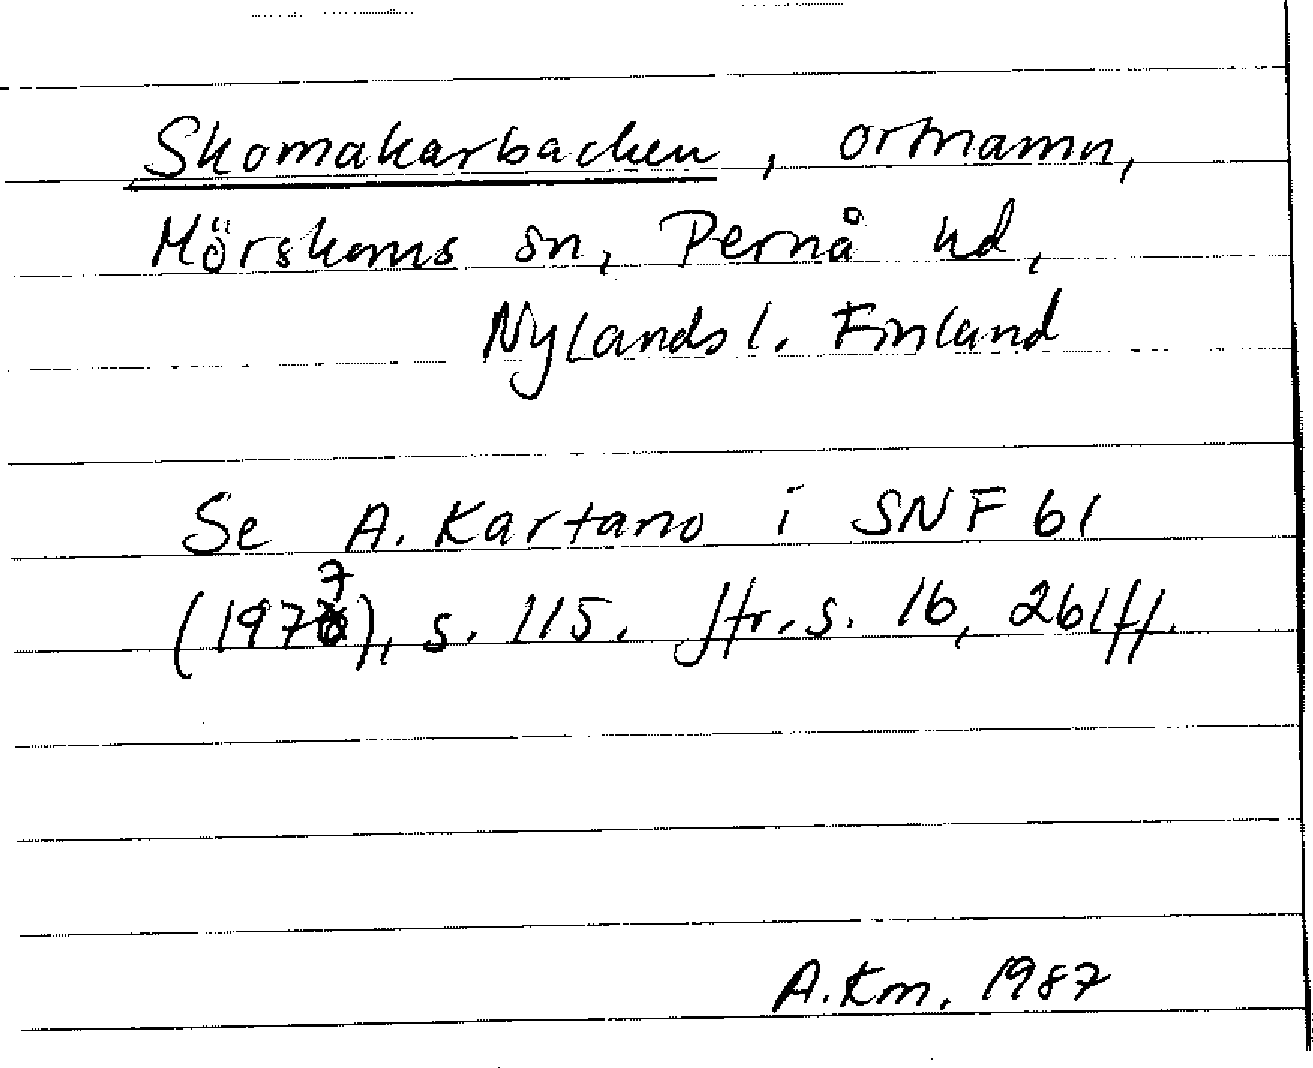 Skomakarbacken, ortnamn,
Mörskoms sn, Pernå hd,
Nylands l. Finland
Se A. Kartano i SNF 61
(1977), s. 115. Jfr. s. 16, 261 ff.
A.Km. 1987